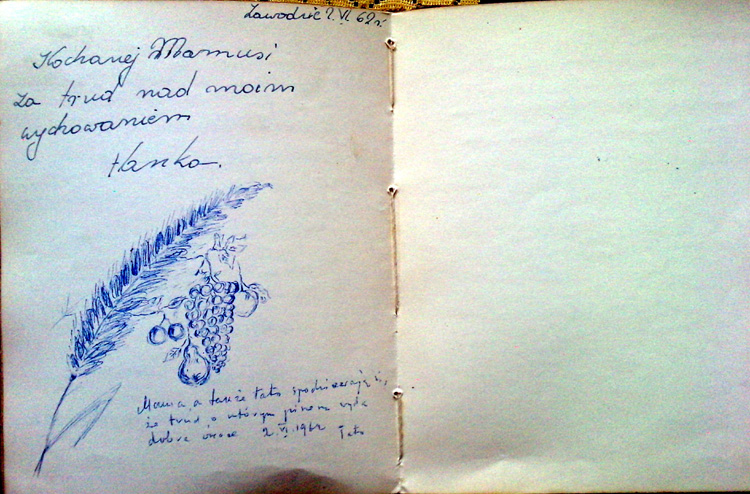 Zawodzie 2.VI.62 r.
Kochanej Mamusi
za trud nad moim
wychowaniem
Hanka.
Mama, a także tato spodziewają się,
że trud, o którym piszesz wyda
dobre owoce 2.VI.1962 Tato